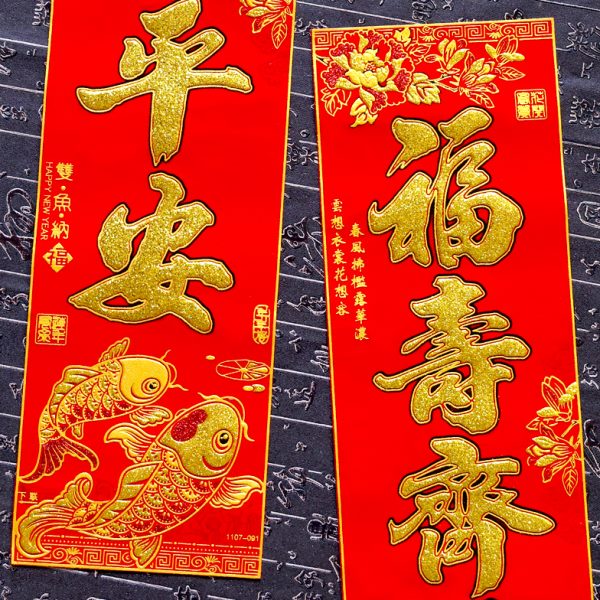 平安
雙·魚·納福
HAPPY NEW YEAR
下聯
1107-091
福壽齊
花開富貴
雲想衣裳花想容
春風拂檻露華濃